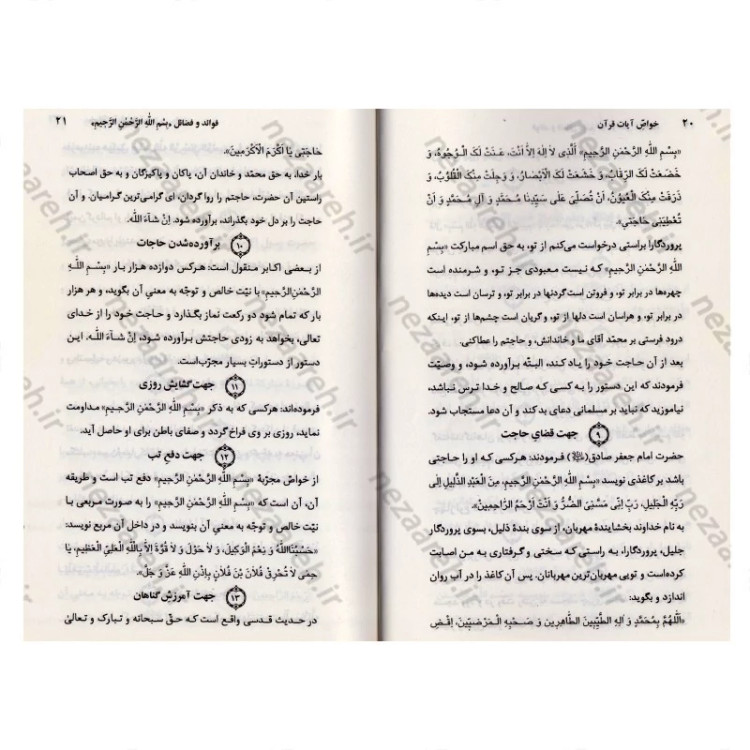 ۲۰ خواصّ آیات قرآن
«بِسْمِ اللَّهِ الرَّحْمٰنِ الرَّحِیمِ» الَّذِی لَا إِلٰهَ إِلَّا أَنْتَ، عَنَتْ لَکَ الْوُجُوهُ، وَ
خَضَعَتْ لَکَ الرِّقَابُ، وَ خَشَعَتْ لَکَ الْأَبْصَارُ، وَ وَجِلَتْ مِنْکَ الْقُلُوبُ، وَ
ذَرَفَتْ مِنْکَ الْعُیُونُ، أَنْ تُصَلِّیَ عَلَی سَیِّدِنَا مُحَمَّدٍ وَ آلِ مُحَمَّدٍ وَ أَنْ
تُعْطِیَنِی حَاجَتِی».
پروردگارا براستی درخواست می‌کنم از تو، به حق اسم مبارکت «بِسْمِ
اللَّهِ الرَّحْمٰنِ الرَّحِیمِ» که نیست معبودی جز تو، و شرمنده است
چهره‌ها در برابر تو، و فروتن است گردنها در برابر تو، و ترسان است دیده‌ها
در برابر تو، و هراسان است دلها از تو، و گریان است چشم‌ها از تو، اینکه
درود فرستی بر محمّد آقای ما و خاندانش، و حاجتم را عطا کنی.
بعد از آن حاجت خود را یاد کند، البتّه برآورده شود، و وصیّت
فرمودند که این دستور را به کسی که صالح و خدا ترس نباشد،
نیاموزید که نباید بر مسلمانی دعای بد کند و آن دعا مستجاب شود.
۹ جهت قضایِ حاجت
حضرت امام جعفر صادق(ﷺ) فرمودند: هرکسی که او را حاجتی
باشد بر کاغذی نویسد «بِسْمِ اللَّهِ الرَّحْمٰنِ الرَّحِیمِ، مِنَ الْعَبْدِ الذَّلِیلِ إِلَی
رَبِّهِ الْجَلِیلِ، رَبِّ إِنِّی مَسَّنِیَ الضُّرُّ وَ أَنْتَ أَرْحَمُ الرَّاحِمِینَ».
به نام خداوند بخشایندهٔ مهربان، از سوی بندهٔ ذلیل، بسوی پروردگار
جلیل، پروردگارا، به راستی که سختی و گرفتاری به من اصابت
کرده‌است و تویی مهربان‌ترین مهربانان. پس آن کاغذ را در آب روان
اندازد و بگوید:
«اللَّهُمَّ بِمُحَمَّدٍ وَ آلِهِ الطَّیِّبِینَ الطَّاهِرِینَ وَ صَحْبِهِ الْمَرْضِیِّینَ، اِقْضِ
فوائد و فضائل «بِسْمِ اللَّهِ الرَّحْمٰنِ الرَّحِیمِ» ۲۱
حَاجَتِی یَا أَکْرَمَ الْأَکْرَمِینَ».
بار خدا، به حق محمّد و خاندان آن، پاکان و پاکیزگان و به حق اصحاب
راستین آن حضرت، حاجتم را روا گردان، ای گرامی‌ترین گرامیان. و آن
حاجت را بر دل خود بگذراند، برآورده شود. إِنْ شَآءَ اللّٰه.
۱۰ برآورده شدن حاجات
از بعضی اکابر منقول است: هرکس دوازده هزار بار «بِسْمِ اللَّهِ
الرَّحْمٰنِ الرَّحِیمِ» با نیّت خالص و توجّه به معنیِ آن بگوید، و هر هزار
بار که تمام شود دو رکعت نماز بگذارد و حاجت خود را از خدای
تعالی، بخواهد به زودی حاجتش برآورده شود، إِنْ شَآءَ اللّٰه، این
دستور از دستوراتِ بسیار مجرّب‌است.
۱۱ جهت گشایش روزی
فرموده‌اند: هرکسی که به ذکرِ «بِسْمِ اللَّهِ الرَّحْمٰنِ الرَّحِیمِ» مداومت
نماید، روزی بر وی فراخ گردد و صفای باطن برای او حاصل آید.
۱۲ جهت دفع تب
از خواصّ مجرّبهٔ «بِسْمِ اللَّهِ الرَّحْمٰنِ الرَّحِیمِ» دفع تب است و طریقه
آن، آن است که «بِسْمِ اللَّهِ الرَّحْمٰنِ الرَّحِیمِ» را به صورت مربعی با
نیّت خالص و توجّه به معنیِ آن بنویسد و در داخل آن مربع نویسد:
«حَسْبُنَا اللَّهُ وَ نِعْمَ الْوَکِیلُ، وَ لَا حَوْلَ وَ لَا قُوَّةَ إِلَّا بِاللَّهِ الْعَلِیِّ الْعَظِیمِ، یَا
حُمَّی لَا تُحْرِقِی فُلَانَ بْنَ فُلَانٍ بِإِذْنِ اللَّهِ عَزَّ وَ جَلَّ».
۱۳ جهت آمورش گناهان
در حدیث قدسی واقع است که حقّ سبحانه و تبارک و تعالیٰ
nezaareh.ir